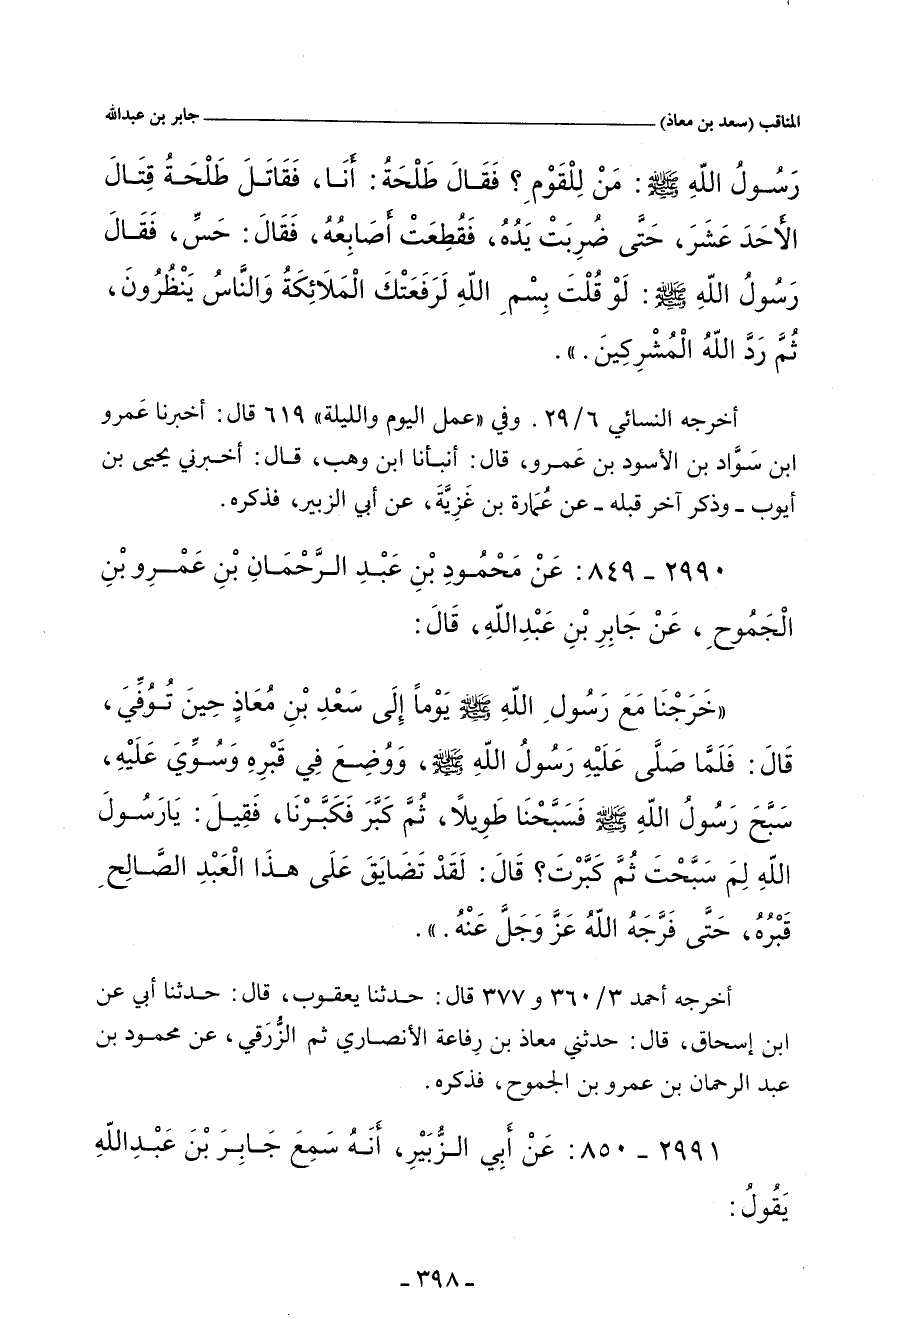 المناقب (سعد بن معاذ) ـــــــــــــــــــــــــــــــــ جابر بن عبدالله
رَسُـولُ اللهِ ﷺ: مَنْ لِلْقَوْمِ ؟ فَقَـالَ طَلْحَةُ: أَنَـا، فَقَاتَـلَ طَلْحَـةُ قِتَالَ
الأَحَدَ عَشَرَ، حَتَّى ضُرِبَتْ يَدُهُ، فَقُطِعَتْ أَصَابِعُهُ، فَقَالَ: حَسِّ، فَقَـالَ
رَسُولُ اللهِ ﷺ: لَوْ قُلْتَ بِسْمِ اللهِ لَرَفَعَتْكَ الْمَلَائِكَةُ وَالنَّاسُ يَنْظُرُونَ،
ثُمَّ رَدَّ اللهُ الْمُشْرِكِينَ.».
أخرجه النسائي ٢٩/٦. وفي «عمل اليوم والليلة» ٦١٩ قال: أخبرنا عَمرو
ابن سَوَّاد بن الأسود بن عَمـرو، قال: أنبـأنا ابن وهب، قـال: أخـبرني يحيى بن
أيوب ـ وذكر آخر قبله ـ عن عُمَارة بن غَزِيَّةَ، عن أبي الزبير، فذكره.
٢٩٩٠ ـ ٨٤٩: عَنْ مَحْمُـودِ بْنِ عَبْـدِ الـرَّحْمَـانِ بْنِ عَمْـرِو بْنِ
الْجَمُوحِ، عَنْ جَابِرِ بْنِ عَبْدِاللهِ، قَالَ:
«خَرَجْنَا مَعَ رَسُولِ اللهِ ﷺ يَوْماً إِلَى سَعْدِ بْنِ مُعَاذٍ حِينَ تُـوُفِّيَ،
قَالَ: فَلَمَّا صَلَّى عَلَيْهِ رَسُولُ اللهِ ﷺ، وَوُضِـعَ فِي قَبْرِهِ وَسُوِّيَ عَلَيْهِ،
سَبَّحَ رَسُولُ اللهِ ﷺ فَسَبَّحْنَا طَوِيلاً، ثُمَّ كَبَّرَ فَكَبَّرْنَا، فَقِيلَ: يَارَسُولَ
اللهِ لِمَ سَبَّحْتَ ثُمَّ كَبَّرْتَ؟ قَالَ: لَقَدْ تَضَايَقَ عَلَى هـذَا الْعَبْدِ الصَّـالِحِ
قَبْرُهُ، حَتَّى فَرَّجَهُ اللهُ عَزَّ وَجَلَّ عَنْهُ.».
أخرجه أحمد ٣٦٠/٣ و ٣٧٧ قال: حـدثنا يعقـوب، قال: حـدثنا أبي عن
ابن إسحاق، قال: حدثني معاذ بن رِفاعة الأنصـاري ثم الزُّرَقي، عن محمـود بن
عبد الرحمان بن عمرو بن الجموح، فذكره.
٢٩٩١ ـ ٨٥٠: عَنْ أَبِي الـزُّبَيْرِ، أَنَّـهُ سَمِعَ جَـابِـرَ بْنَ عَبْـدِاللهِ
يَقُولُ:
ـ ٣٩٨ ـ